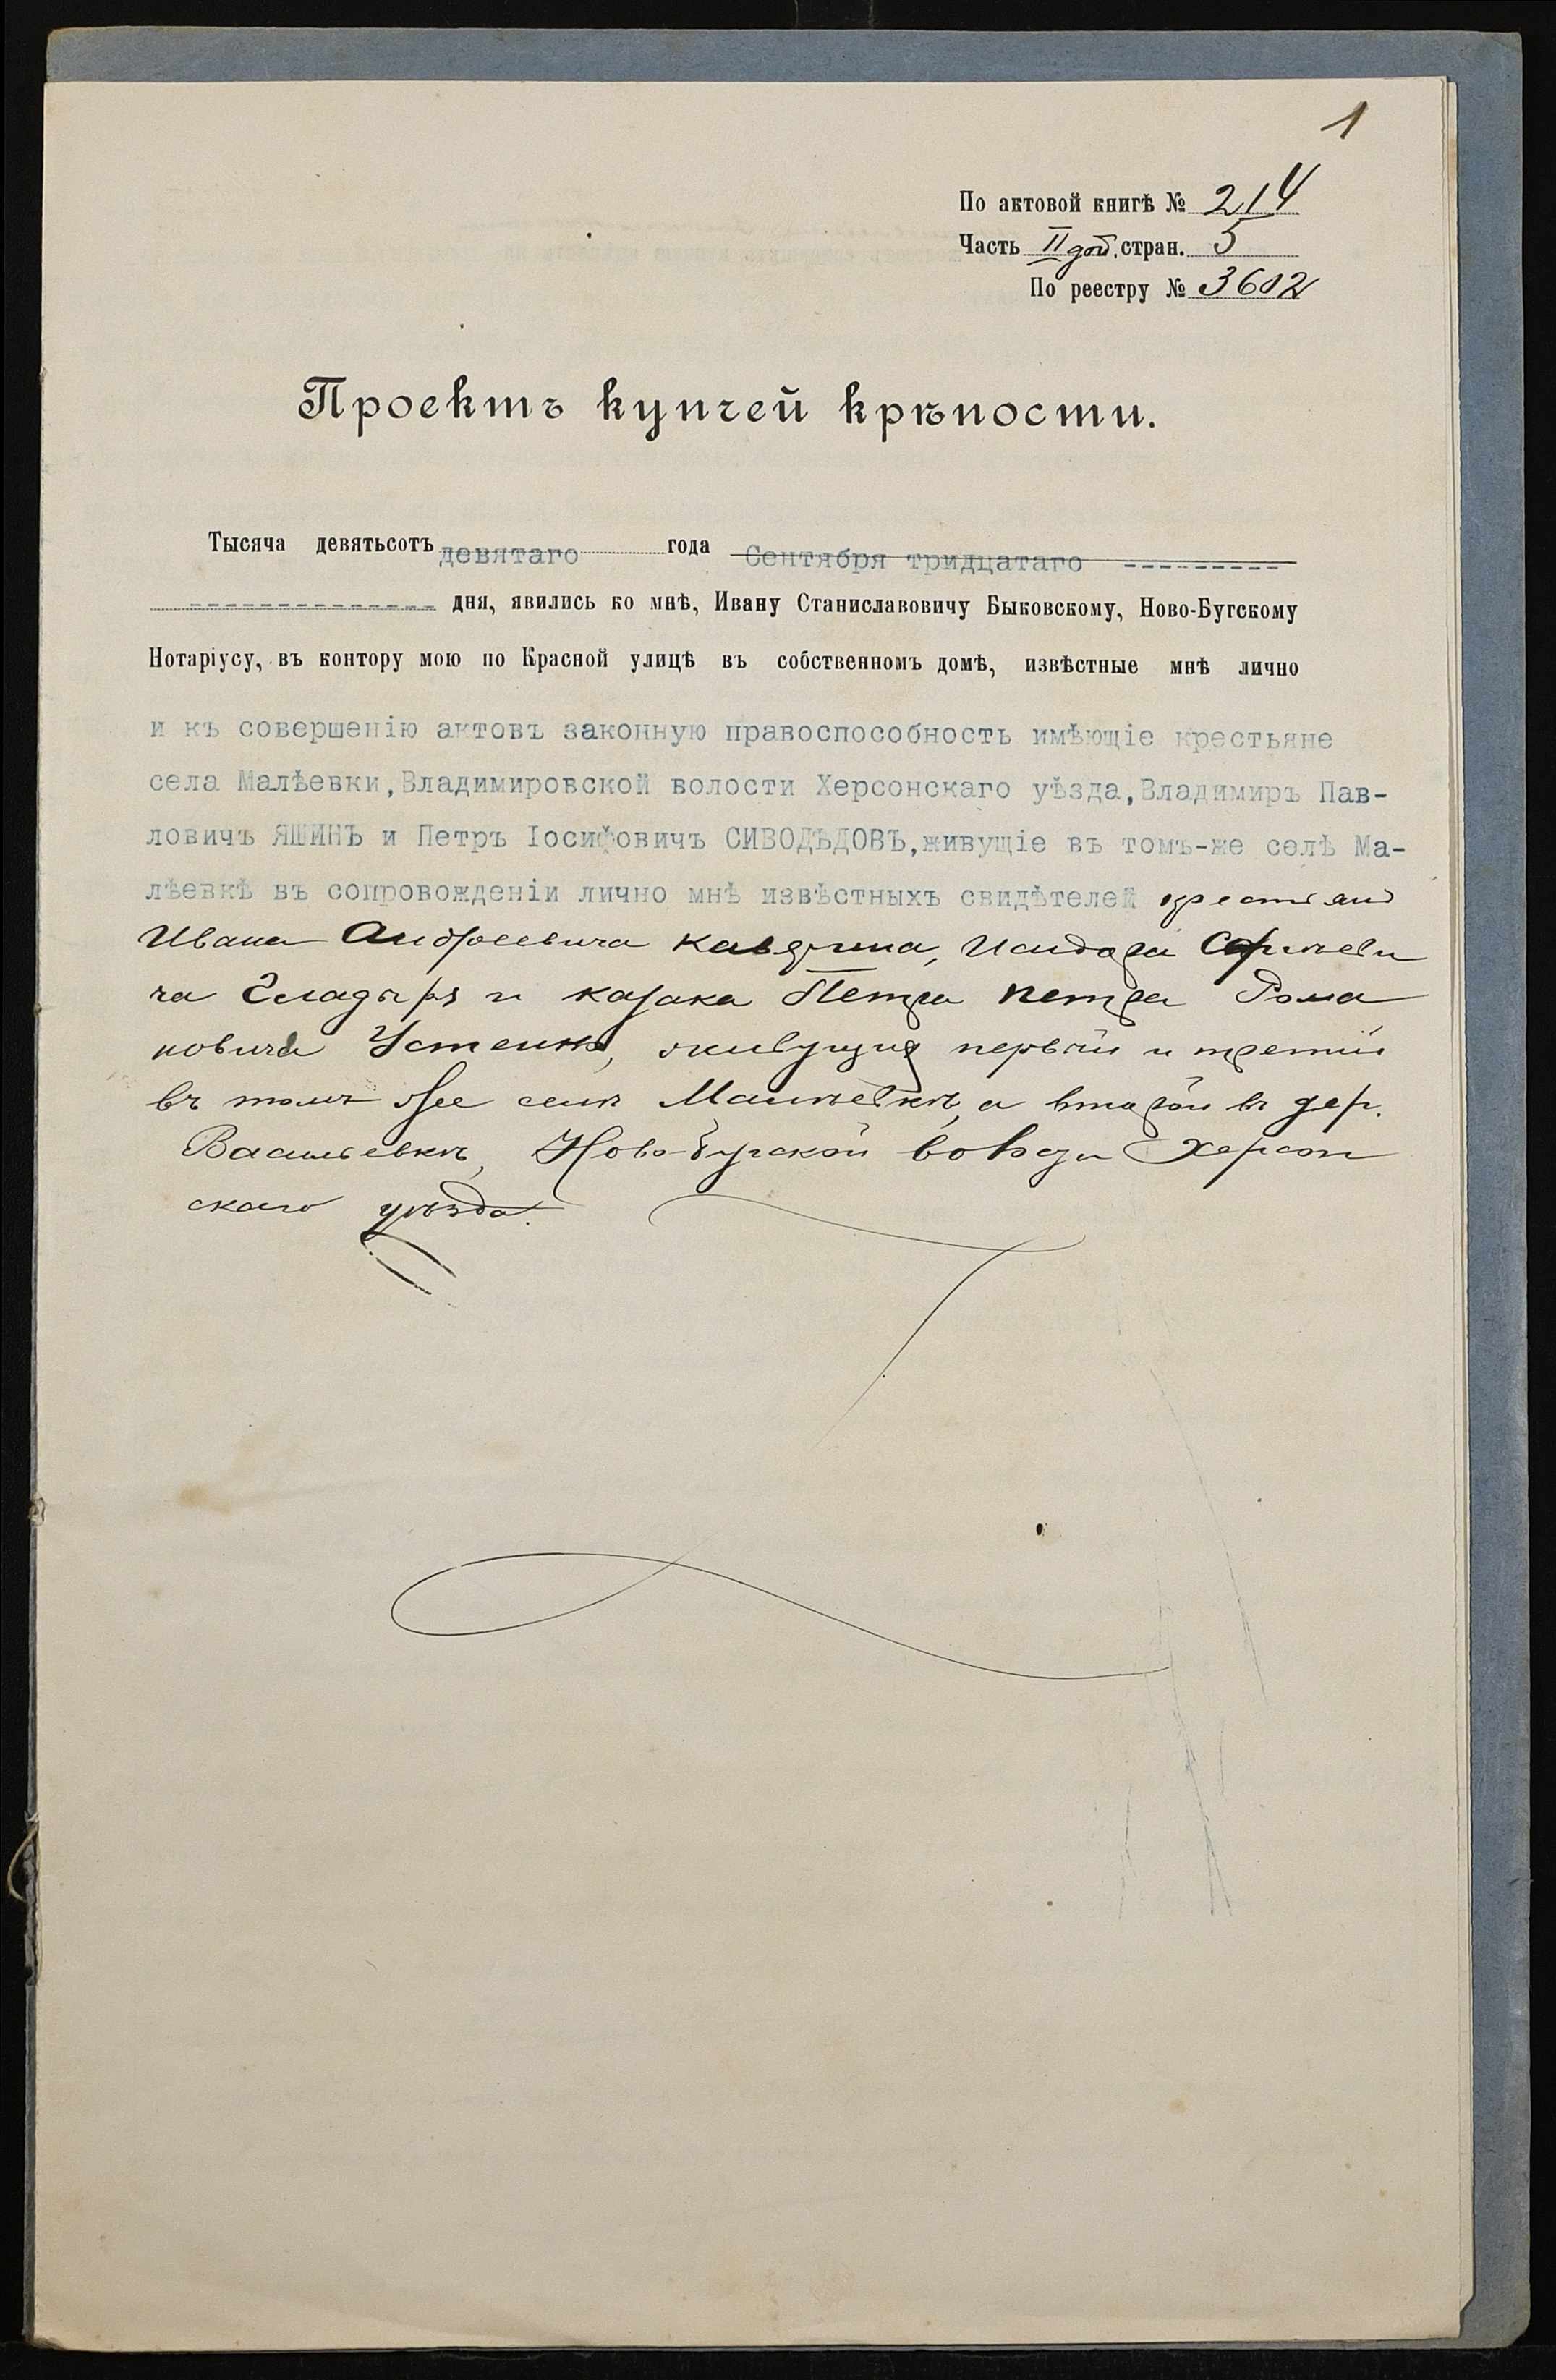 1
По актовой книгѣ № 214
Часть II доп. стран. 5
По реестру № 3602
Проектъ купчей крѣпости.
Тысяча девятьсотъ девятаго года Сентября тридцатаго
дня, явились ко мнѣ, Ивану Станиславовичу Быковскому, Ново-Бугскому
Нотаріусу, въ контору мою по Красной улицѣ въ собственномъ домѣ, извѣстные мнѣ лично
и къ совершенію актовъ законную правоспособность имѣющіе крестьяне
села Малѣевки, Владимировской волости Херсонскаго уѣзда, Владимиръ Пав-
ловичъ ЯШИНЪ и Петръ Іосифовичъ СИВОДѢДОВЪ, живущіе въ томъ-же селѣ Ма-
лѣевкѣ въ сопровожденіи лично мнѣ извѣстныхъ свидѣтелей крестьянъ
Ивана Андреевича Исидора
ча Гладыря и казака Петра Петра Рома
новича Устенко, живущихъ первый и третій
въ томъ же селѣ Малѣевкѣ, а второй въ дер.
Васильевкѣ, Ново-Бугской Херсон
скаго уѣзда.